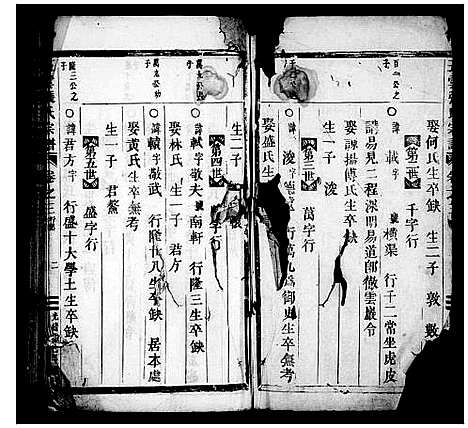 娶何氏生卒缺 生二子 敦 敷
第二世 千字行
百一公之子
○諱軾字 號橫渠 行千二常坐虎皮
講易見二程深明易道卽徹雲巖令
娶 諱揚傅氏生卒缺
生一子 浚
第三世 萬字行
諱浚 字 行萬九爲御史生卒無考
娶盛氏生
生二子
第四世 字行
萬九公之子
○諱栻字敬夫 號南軒 行隆三生卒缺
娶林氏 生一子 君方
萬九公幼子
○諱轅字敬武 行隆十八生卒缺 居本處
娶黃氏生卒無考
生一子 君鰲
第五世 盛字行
隆三公之子
○諱君方字 行盛十大學士生卒缺